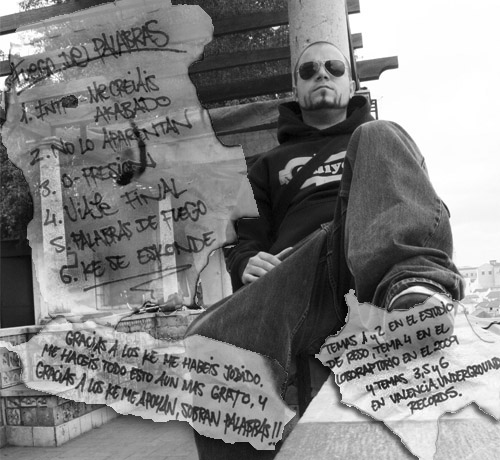 FUEGO DE PALABRAS
1. INTRO - ME CREIAIS
ACABADO
2. NO LO APARENTAN
3. O-PRESION
4. VIAJE FINAL
5. PALABRAS DE FUEGO
6. KE SE ESKONDE
GRACIAS A LOS KE ME HABEIS JODIDO.
ME HACEIS TODO ESTO AUN MAS GRATO, Y
GRACIAS A LOS KE ME APOYAN, SOBRAN PALABRAS!!
TEMAS 1 Y 2 EN EL ESTUDIO
DE PESO, TEMA 4 EN EL
LOBORAPTORIO EN EL 2009
Y TEMAS 3, 5 Y 6
EN VALENCIA UNDERGROUND
RECORDS.